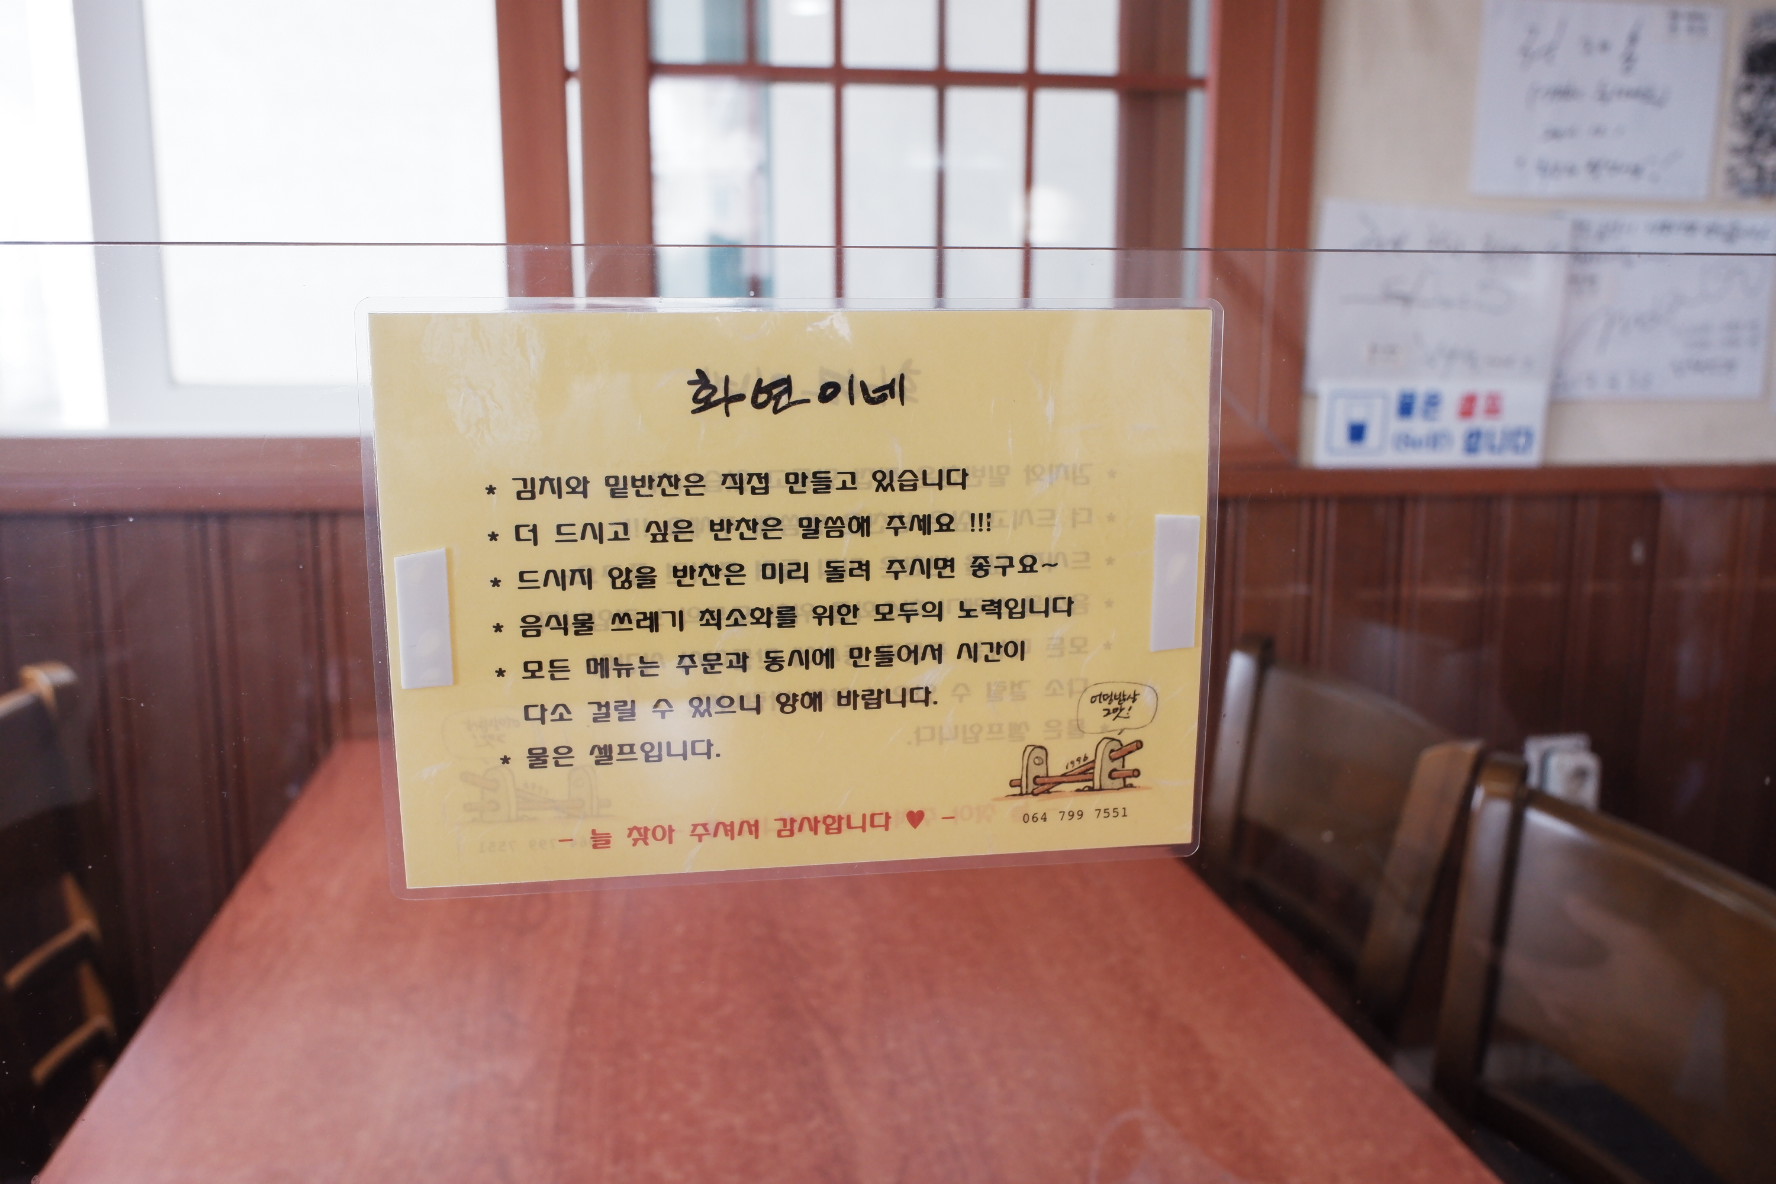 화연이네
* 김치와 밑반찬은 직접 만들고 있습니다
* 더 드시고 싶은 반찬은 말씀해 주세요 !!!
* 드시지 않을 반찬은 미리 돌려 주시면 좋구요~
* 음식물 쓰레기 최소화를 위한 모두의 노력입니다
* 모든 메뉴는 주문과 동시에 만들어서 시간이
다소 걸릴 수 있으니 양해 바랍니다.
* 물은 셀프입니다.
어멍밥상
그맛!
1996
064 799 7551
- 늘 찾아 주셔서 감사합니다 ♥ -
물은 셀프
(Self) 입니다